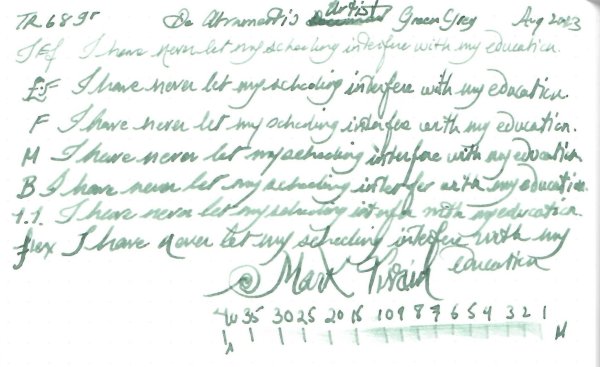 TR 68 gr De Atramentis Artist Green Grey Aug 2023
JEf I have never let my schooling interfere with my education.
EF I have never let my schooling interfere with my education.
F I have never let my schooling interfere with my education.
M I have never let my schooling interfere with my education.
B I have never let my schooling interfere with my education.
1.1. I have never let my schooling interfere with my education.
flex I have never let my schooling interfere with my
education
Mark Twain
40 35 30 25 20 15 10 9 8 7 6 5 4 3 2 1
M